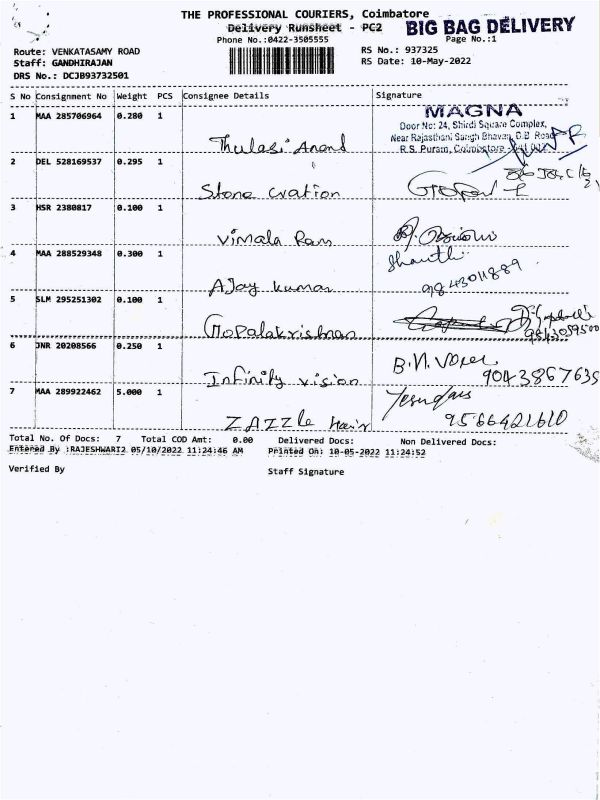 THE PROFESSIONAL COURIERS, Coimbatore
Delivery Runsheet - PC2
BIG BAG DELIVERY
Phone No.:0422-3505555
Page No.:1
Route: VENKATASAMY ROAD
RS No.: 937325
Staff: GANDHIRAJAN
RS Date: 10-May-2022
DRS No.: DCJB93732501
S No Consignment No Weight PCS Consignee Details Signature
1 MAA 285706964 0.280 1
MAGNA
Door No: 24, Shirdi Square Complex,
Near Rajasthani Sangh Bhavan, D.B. Road
R.S. Puram, Coimbatore
Thulasi Anand
2 DEL 528169537 0.295 1
Stone cration
3 HSR 2380817 0.100 1
Vimala Ram
4 MAA 288529348 0.300 1
Shanthi
9843011889
AJay kumar
5 SLM 295251302 0.100 1
Gopalakrishnan
6 JNR 20208566 0.250 1
9043867635
Infinity vision
7 MAA 289922462 5.000 1
Yesudas
9566421610
ZAZZle Hair
Total No. Of Docs: 7 Total COD Amt: 0.00 Delivered Docs: Non Delivered Docs:
Entered By :RAJESHWARI2 05/10/2022 11:24:46 AM Printed On: 10-05-2022 11:24:52
Verified By Staff Signature